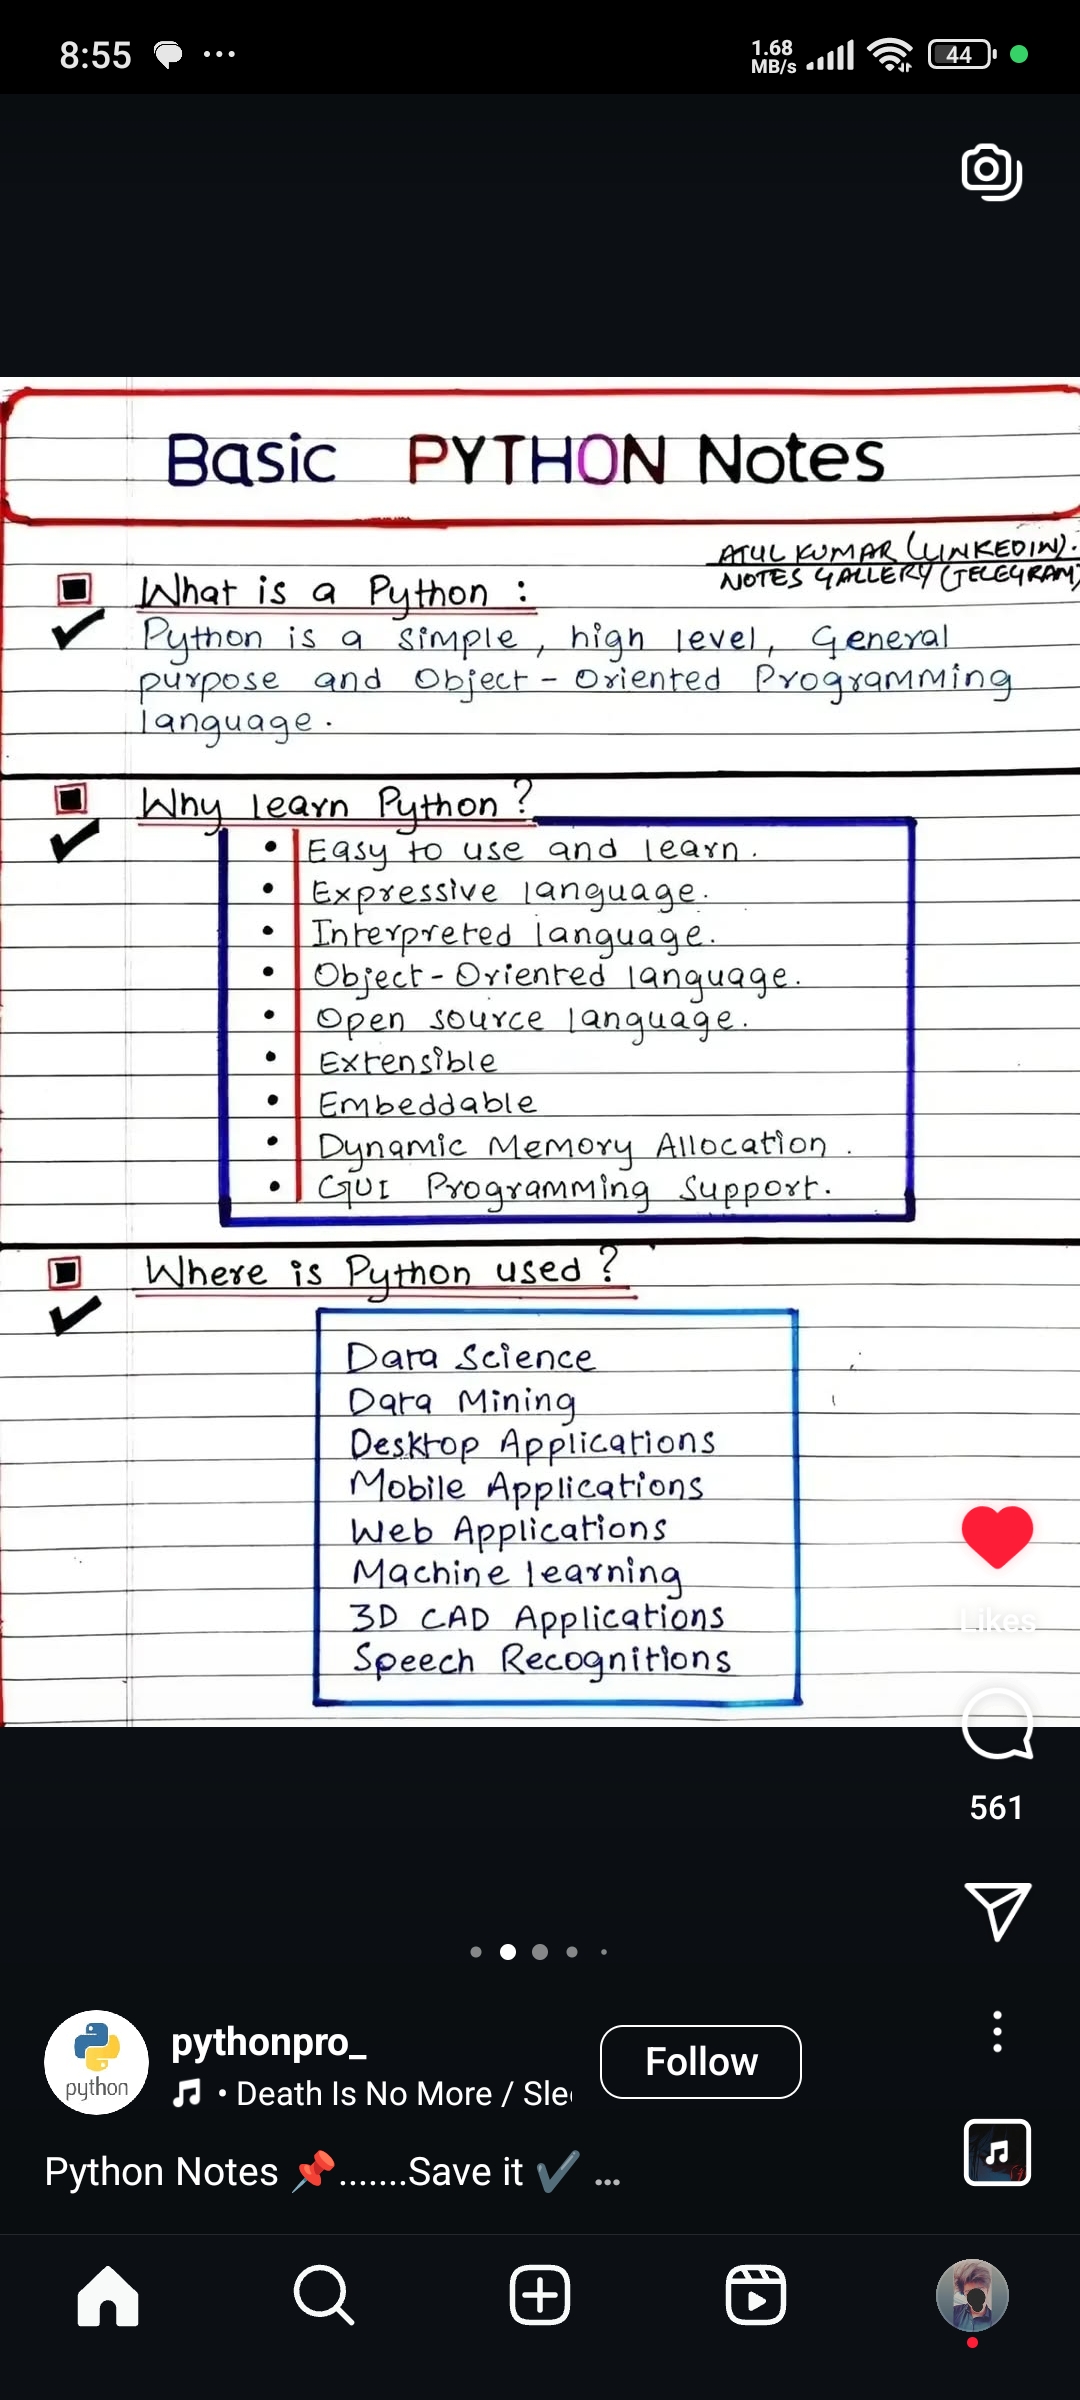 8:55
1.68
MB/s
44
Basic PYTHON Notes
ATUL KUMAR (LINKEDIN).
NOTES GALLERY (TELEGRAM)
What is a Python :
Python is a simple, high level, General
purpose and Object-Oriented Programming
language.
Why learn Python?
• Easy to use and learn.
• Expressive language.
• Interpreted language.
• Object-Oriented language.
• Open source language.
• Extensible
• Embeddable
• Dynamic Memory Allocation.
• GUI Programming Support.
Where is Python used?
Data Science
Data Mining
Desktop Applications
Mobile Applications
Web Applications
Machine learning
3D CAD Applications
Speech Recognitions
Likes
561
python
pythonpro_
Follow
• Death Is No More / Sle
Python Notes 📌.......Save it ✔️ ...